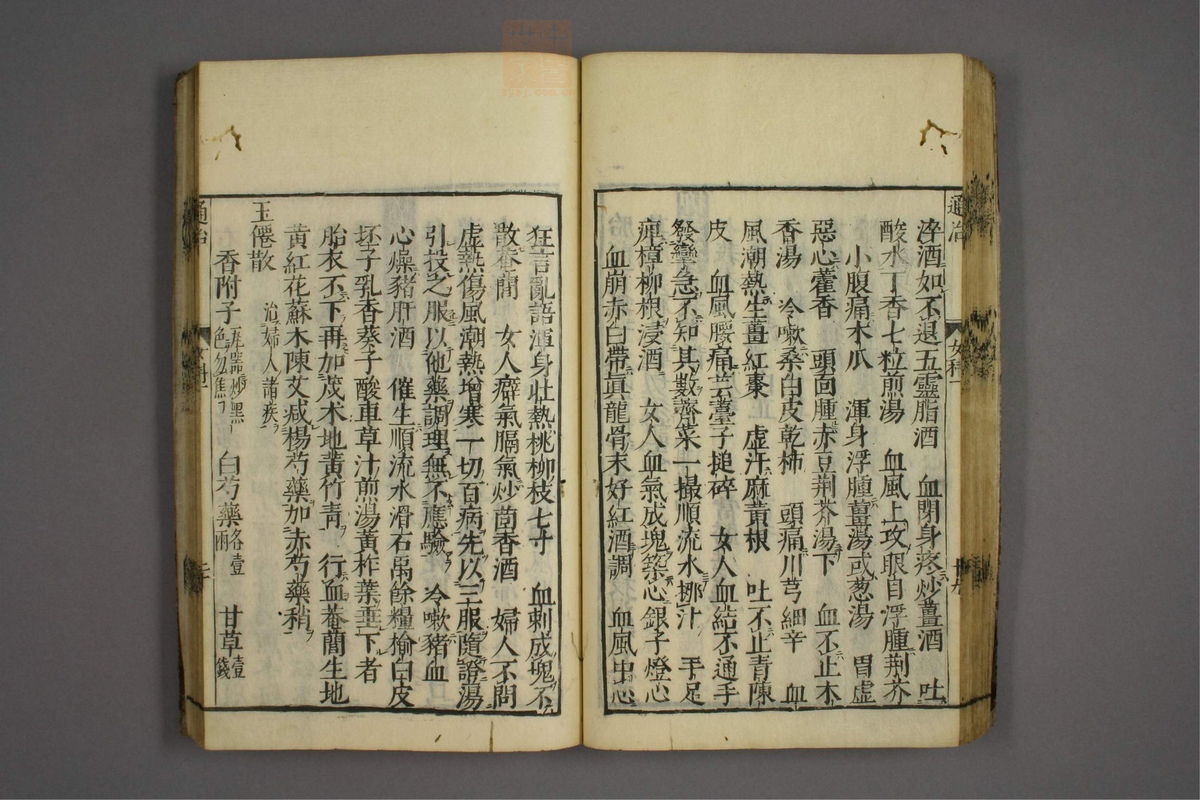 淬酒如不退五靈脂酒　血閉身疼炒薑酒　吐
酸水丁香七粒煎湯　血風上攻眼目浮腫荆芥
小腹痛木瓜　渾身浮腫薑湯或葱湯　胃虛
惡心藿香　頭面腫赤豆荆芥湯下　血不止木
香湯　冷嗽桑白皮乾柿　頭痛川芎細辛　血
風潮熱生薑紅棗　虛汗麻黃根　吐不止青陳
皮　血風腰痛芸薹子搥碎　女人血結不通手
發攣急不知其數薺菜一撮順流水擂汁　手足
瘅樟柳根浸酒　女人血氣成塊築心銀子燈心
血崩赤白帶眞龍骨末好紅酒調　血風虫心
通治
女科一
狂言亂語渾身壯熱桃柳枝七寸　血刺成塊不
散菴䕡　女人癖氣膈氣炒茴香酒　婦人不問
虛熱傷風潮熱增寒一切百病先以三服隨證湯
引投之服以他藥調理無不應驗　冷嗽豬血
心燥豬肝酒　催生順流水滑石禹餘糧榆白皮
坯子乳香葵子酸車草汁煎湯黃柞葉垂下者
胎衣不下再加莪术地黃竹靑　行血菴䕡生地
黃紅花蘇木陳艾减楊芍藥加赤芍藥稍
玉僊散　治婦人諸疾
香附子 瓦器炒黑色勿焦 白芍藥 各壹兩 甘草 壹錢
通治
女科一
二十